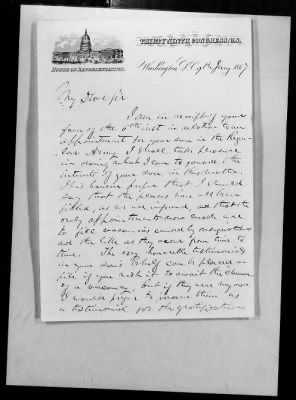 THIRTY NINTH CONGRESS, U.S.
HOUSE OF REPRESENTATIVES.
Washington D.C. 9th Jany 1867
My Dear Sir
I am in receipt of your
favor of the 6th inst in relation to an
appointment for your son in the Regu-
lar Army. I shall take pleasure
in doing what I can to forward the
interests of your son in this matter.
It is however proper that I should
say that the places have all been
filled, as we are informed, so that the
only appointments now made are
to fill vacancies caused by resignations
as they occur from time to
time. The very honorable testimonials
in your son's behalf can be placed on
file if you wish it to await the chance
of a vacancy, but if they are my own
I would prefer to them as
a testimonial for the gratification